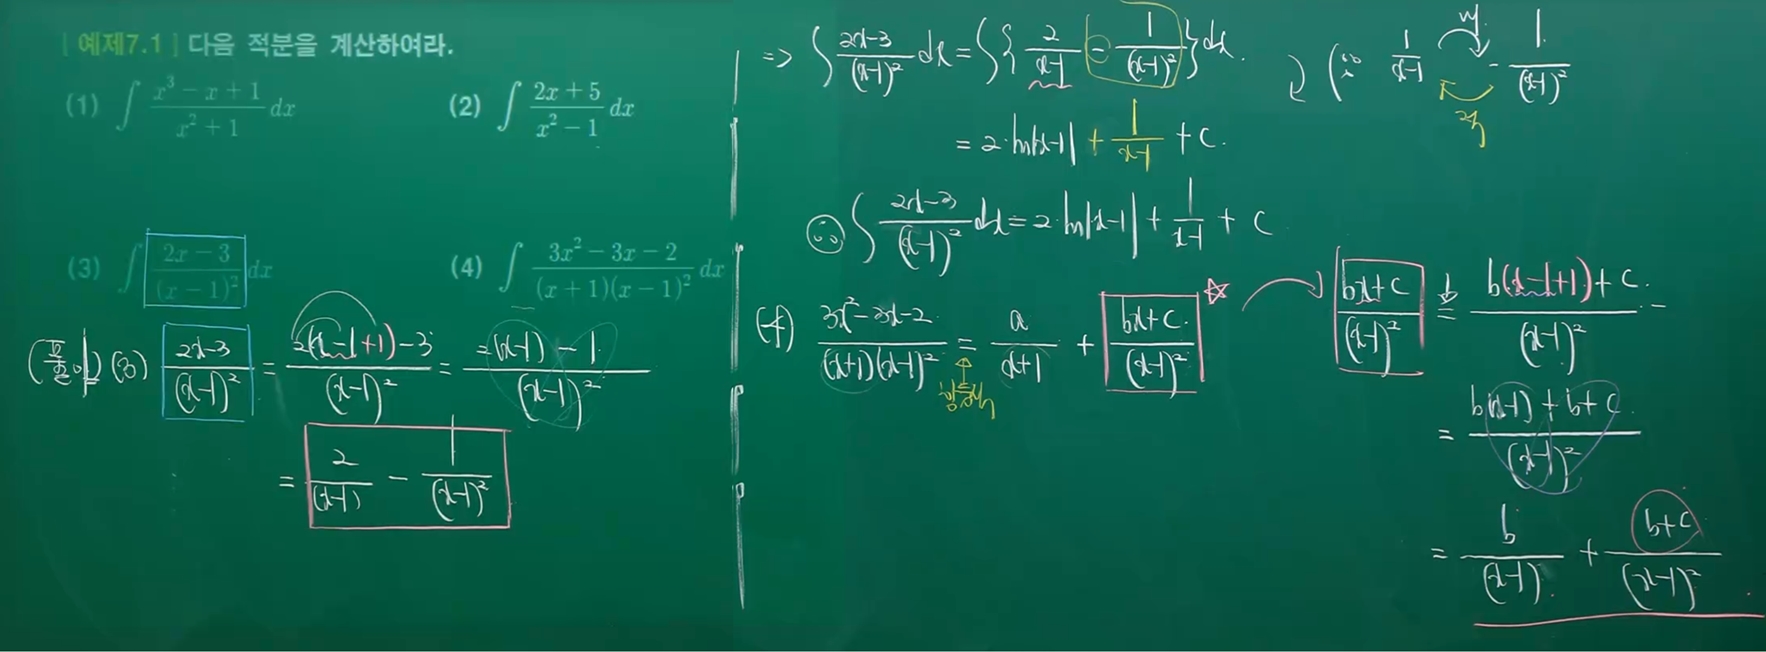 [예제7.1] 다음 적분을 계산하여라.
(1) ∫ (x³ − x + 1)/(x² + 1) dx (2) ∫ (2x + 5)/(x² − 1) dx
(3) ∫ (2x − 3)/(x − 1)² dx (4) ∫ (3x² − 3x − 2)/((x + 1)(x − 1)²) dx
(풀이) (3) (2x−3)/(x−1)² = (2(x−1+1)−3)/(x−1)² = (2(x−1) − 1)/(x−1)²
= 2/(x−1) − 1/(x−1)²
=> ∫ (2x−3)/(x−1)² dx = ∫ { 2/(x−1) − 1/(x−1)² } dx.
= 2·ln|x−1| + 1/(x−1) + C.
(∵ 1/(x−1) − 1/(x−1)²
미.
적
∴ ∫ (2x−3)/(x−1)² dx = 2·ln|x−1| + 1/(x−1) + C
(4) (3x²−3x−2)/((x+1)(x−1)²) = a/(x+1) + (bx+c)/(x−1)² ☆
(bx+c)/(x−1)² = (b(x−1+1)+c)/(x−1)²
= (b(x−1)+b+c)/(x−1)²
= b/(x−1) + (b+c)/(x−1)²